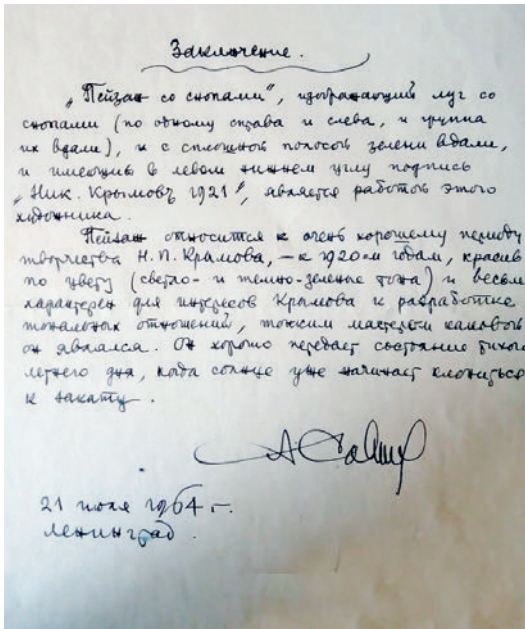 Заключение.
„Пейзаж со снопами", изображающий луг со
снопами (по одному справа и слева, и группа
их вдали), и с сплошной полосой зелени вдали,
и имеющий в левом нижнем углу подпись
„Ник. Крымовъ 1921", является работой этого
художника.
Пейзаж относится к очень хорошему периоду
творчества Н.П. Крымова, — к 1920-м годам, красив
по цвету (светло- и темно-зеленые тона) и весьма
характерен для интересов Крымова к разработке
тональных отношений, тонким мастером каковой
он являлся. Он хорошо передает состояние тихого
летнего дня, когда солнце уже начинает клониться
к закату.
21 июля 1964 г.
Ленинград.